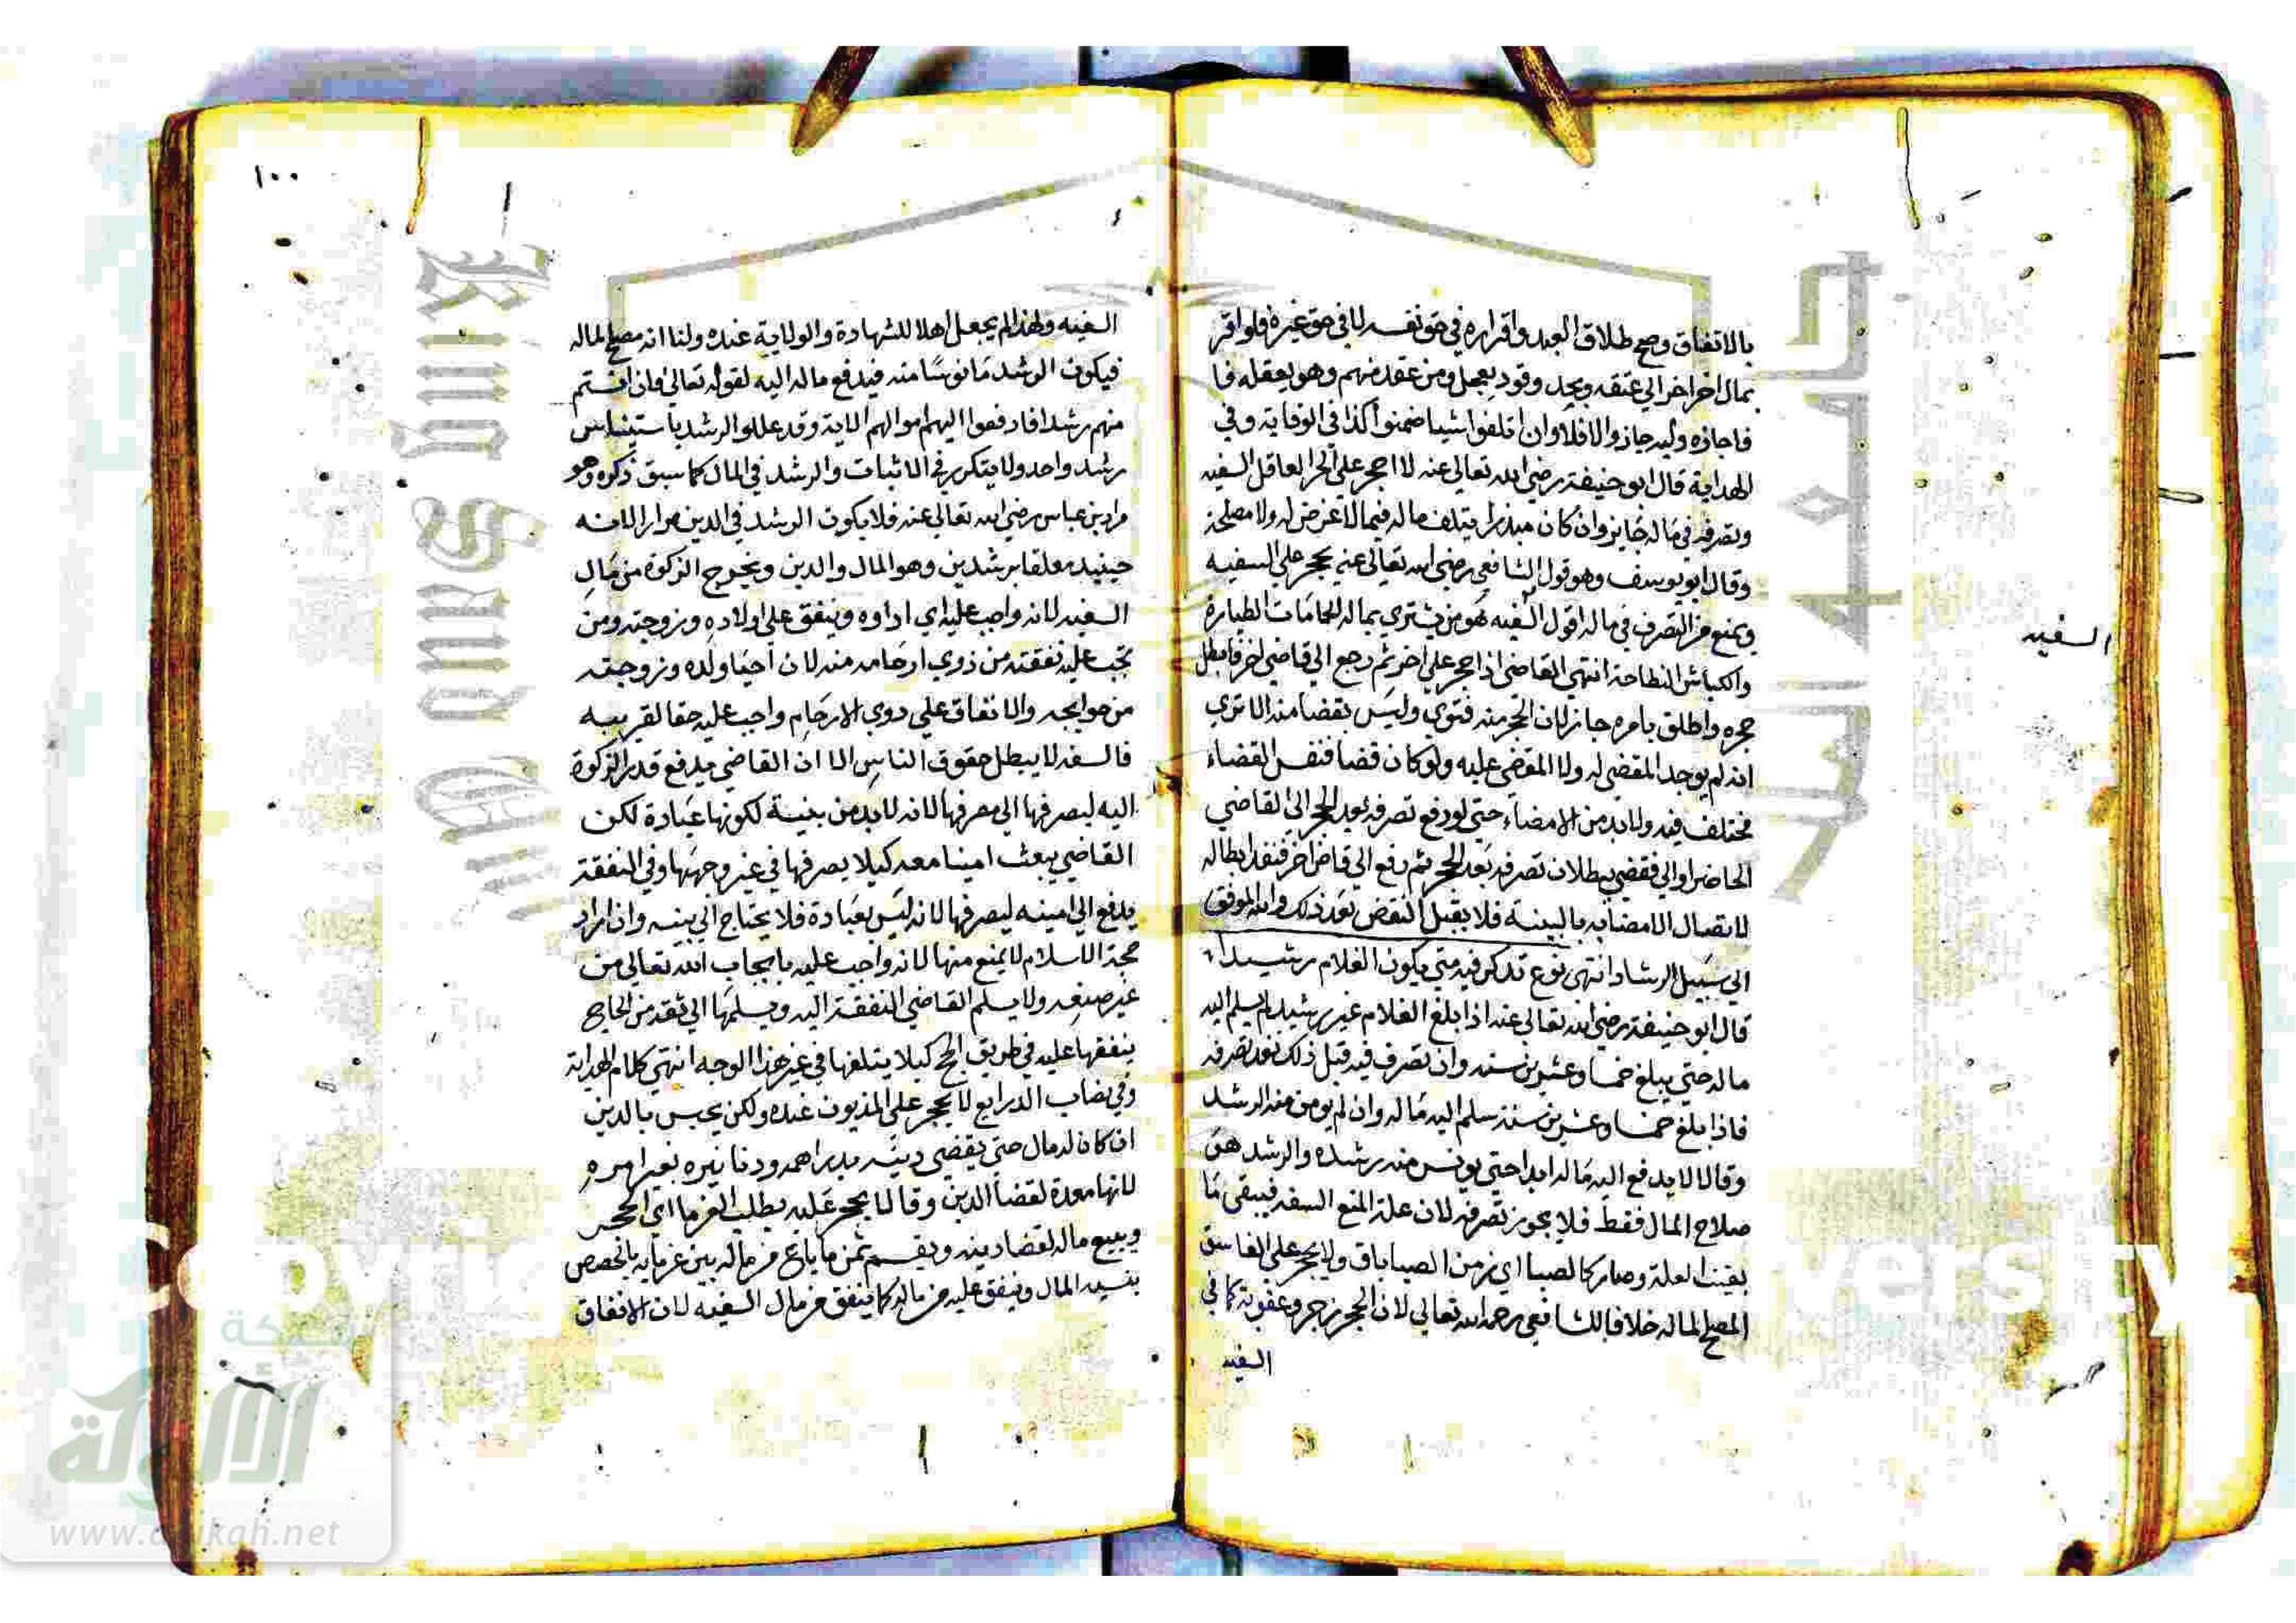 بالاتفاق وصح طلاق العبد واقراره في حق نفسه لا في حق غيره فلو اقر
بمال اخر الى عتقه وبحد وقود يعجل ومن عقد منهم وهو يعقله فا
فاجازه وليه جاز والا فلا وان اتلفوا شيا ضمنوا كذا في الوقاية وفي
الهداية قال ابو حنيفة رضي الله تعالى عنه لا احجر على الحر العاقل السفيه
وتصرفه في ماله جايز وان كان مبذرا يتلف ماله فيما لا غرض له ولا مصلحة
وقال ابو يوسف وهو قول الشافعي رضي الله تعالى عنه يحجر على السفيه
ويمنع من التصرف في ماله اقول السفيه هو من يشتري بماله الحمامات الطيارة
والكباش النطاحة انتهى القاضي اذا حجر على اخر ثم رجع الى قاضي اخر فابطل
حجره واطلق بامره جاز لان الحجر منه فتوي وليس بقضا منه الا تري
انه لم يوجد المقضي له ولا المقضي عليه ولو كان قضا فنفس القضاء
مختلف فيه ولا بد من الامضاء حتى لو رفع تصرفه بعد الحجر الى القاضي
الحاضر او الى فقضى ببطلان تصرفه بعد الحجر ثم رفع الى قاض اخر فنفذ ابطاله
لاتصال الامضا به بالبينة فلا يقبل النقض بعد ذلك والله الموفق
الى سبيل الرشاد انتهى نوع تذكر فيه متي يكون الغلام رشيدا
قال ابو حنيفة رضي الله تعالى عنه اذا بلغ الغلام غير رشيد لم يسلم اليه
ماله حتى يبلغ خمسا وعشرين سنة وان تصرف فيه قبل ذلك نفذ تصرفه
فاذا بلغ خمسا وعشرين سنة سلم اليه ماله وان لم يومن منه الرشد
وقالا لا يدفع اليه ماله ابدا حتى يونس منه رشده والرشد هو
صلاح المال فقط فلا يجوز تصرفه لان علة المنع السفه فيبقى ما
بقيت العلة وصار كالصبا اي زمن الصبا باق ولا يحجر على الفاسق
المصلح لماله خلافا للشافعي رحمه الله تعالى لان الحجر زجر وعقوبة كما في
السفيه
السفيه
١٠٠
السفيه ولهذا لم يجعل اهلا للشهادة والولاية عنده ولنا انه مصلح لماله
فيكون الرشد مانوسا منه فيدفع ماله اليه لقوله تعالى فان انستم
منهم رشدا فادفعوا اليهم اموالهم الاية وقد عللوا الرشد باستيناس
رشد واحد ولا يتكرر في الاثبات والرشد في المال كما سبق ذكره وهو
مراد بن عباس رضي الله تعالى عنه فلا يكون الرشد في الدين مرارا لانه
حينيذ معلقا برشدين وهو المال والدين ويخرج الزكوة من مال
السفيه لانه واجب عليه اي اداوه وينفق على اولاده وزوجته ومن
تجب عليه نفقته من ذوي ارحامه منه لان احيا ولده وزوجته
من حوايجه والانفاق على ذوي الارحام واجب عليه حقا لقريبه
فالسفه لا يبطل حقوق الناس الا ان القاضي يدفع قدر الزكوة
اليه ليصرفها الى مصرفها لانه لابد من بنية لكونها عبادة لكن
القاضي يبعث امينا معه كيلا يصرفها في غير وجهها وفي النفقة
يدفع الى امينه ليصرفها لانه ليس بعبادة فلا يحتاج الى بينه وان اراد
حجة الاسلام لا يمنع منها لانه واجب عليه بايجاب الله تعالى من
غير صنعه ولا يسلم القاضي النفقة اليه ويسلمها الى ثقة من الحاج
ينفقها عليه في طريق الحج كيلا يتلفها في غير هذا الوجه انتهى كلام الهداية
وفي نصاب الذرايع لا يحجر على المديون عنده ولكن يحبس بالدين
ان كان له مال حتى يقضي دينه بدراهمه ودنانيره بغير امره
لانها معدة لقضا الدين وقالا يحجر عليه بطلب الغرما اي الحجر
ويبيع ماله لقضا دينه ويقسم ثمن ما باع من ماله بين غرمايه بالحصص
المال وينفق عليه من ماله كما ينفق من مال السفيه لان الانفاق
جامعة الملك
King Saud
COPY
versity
شبكة
الألوكة
www.alukah.net